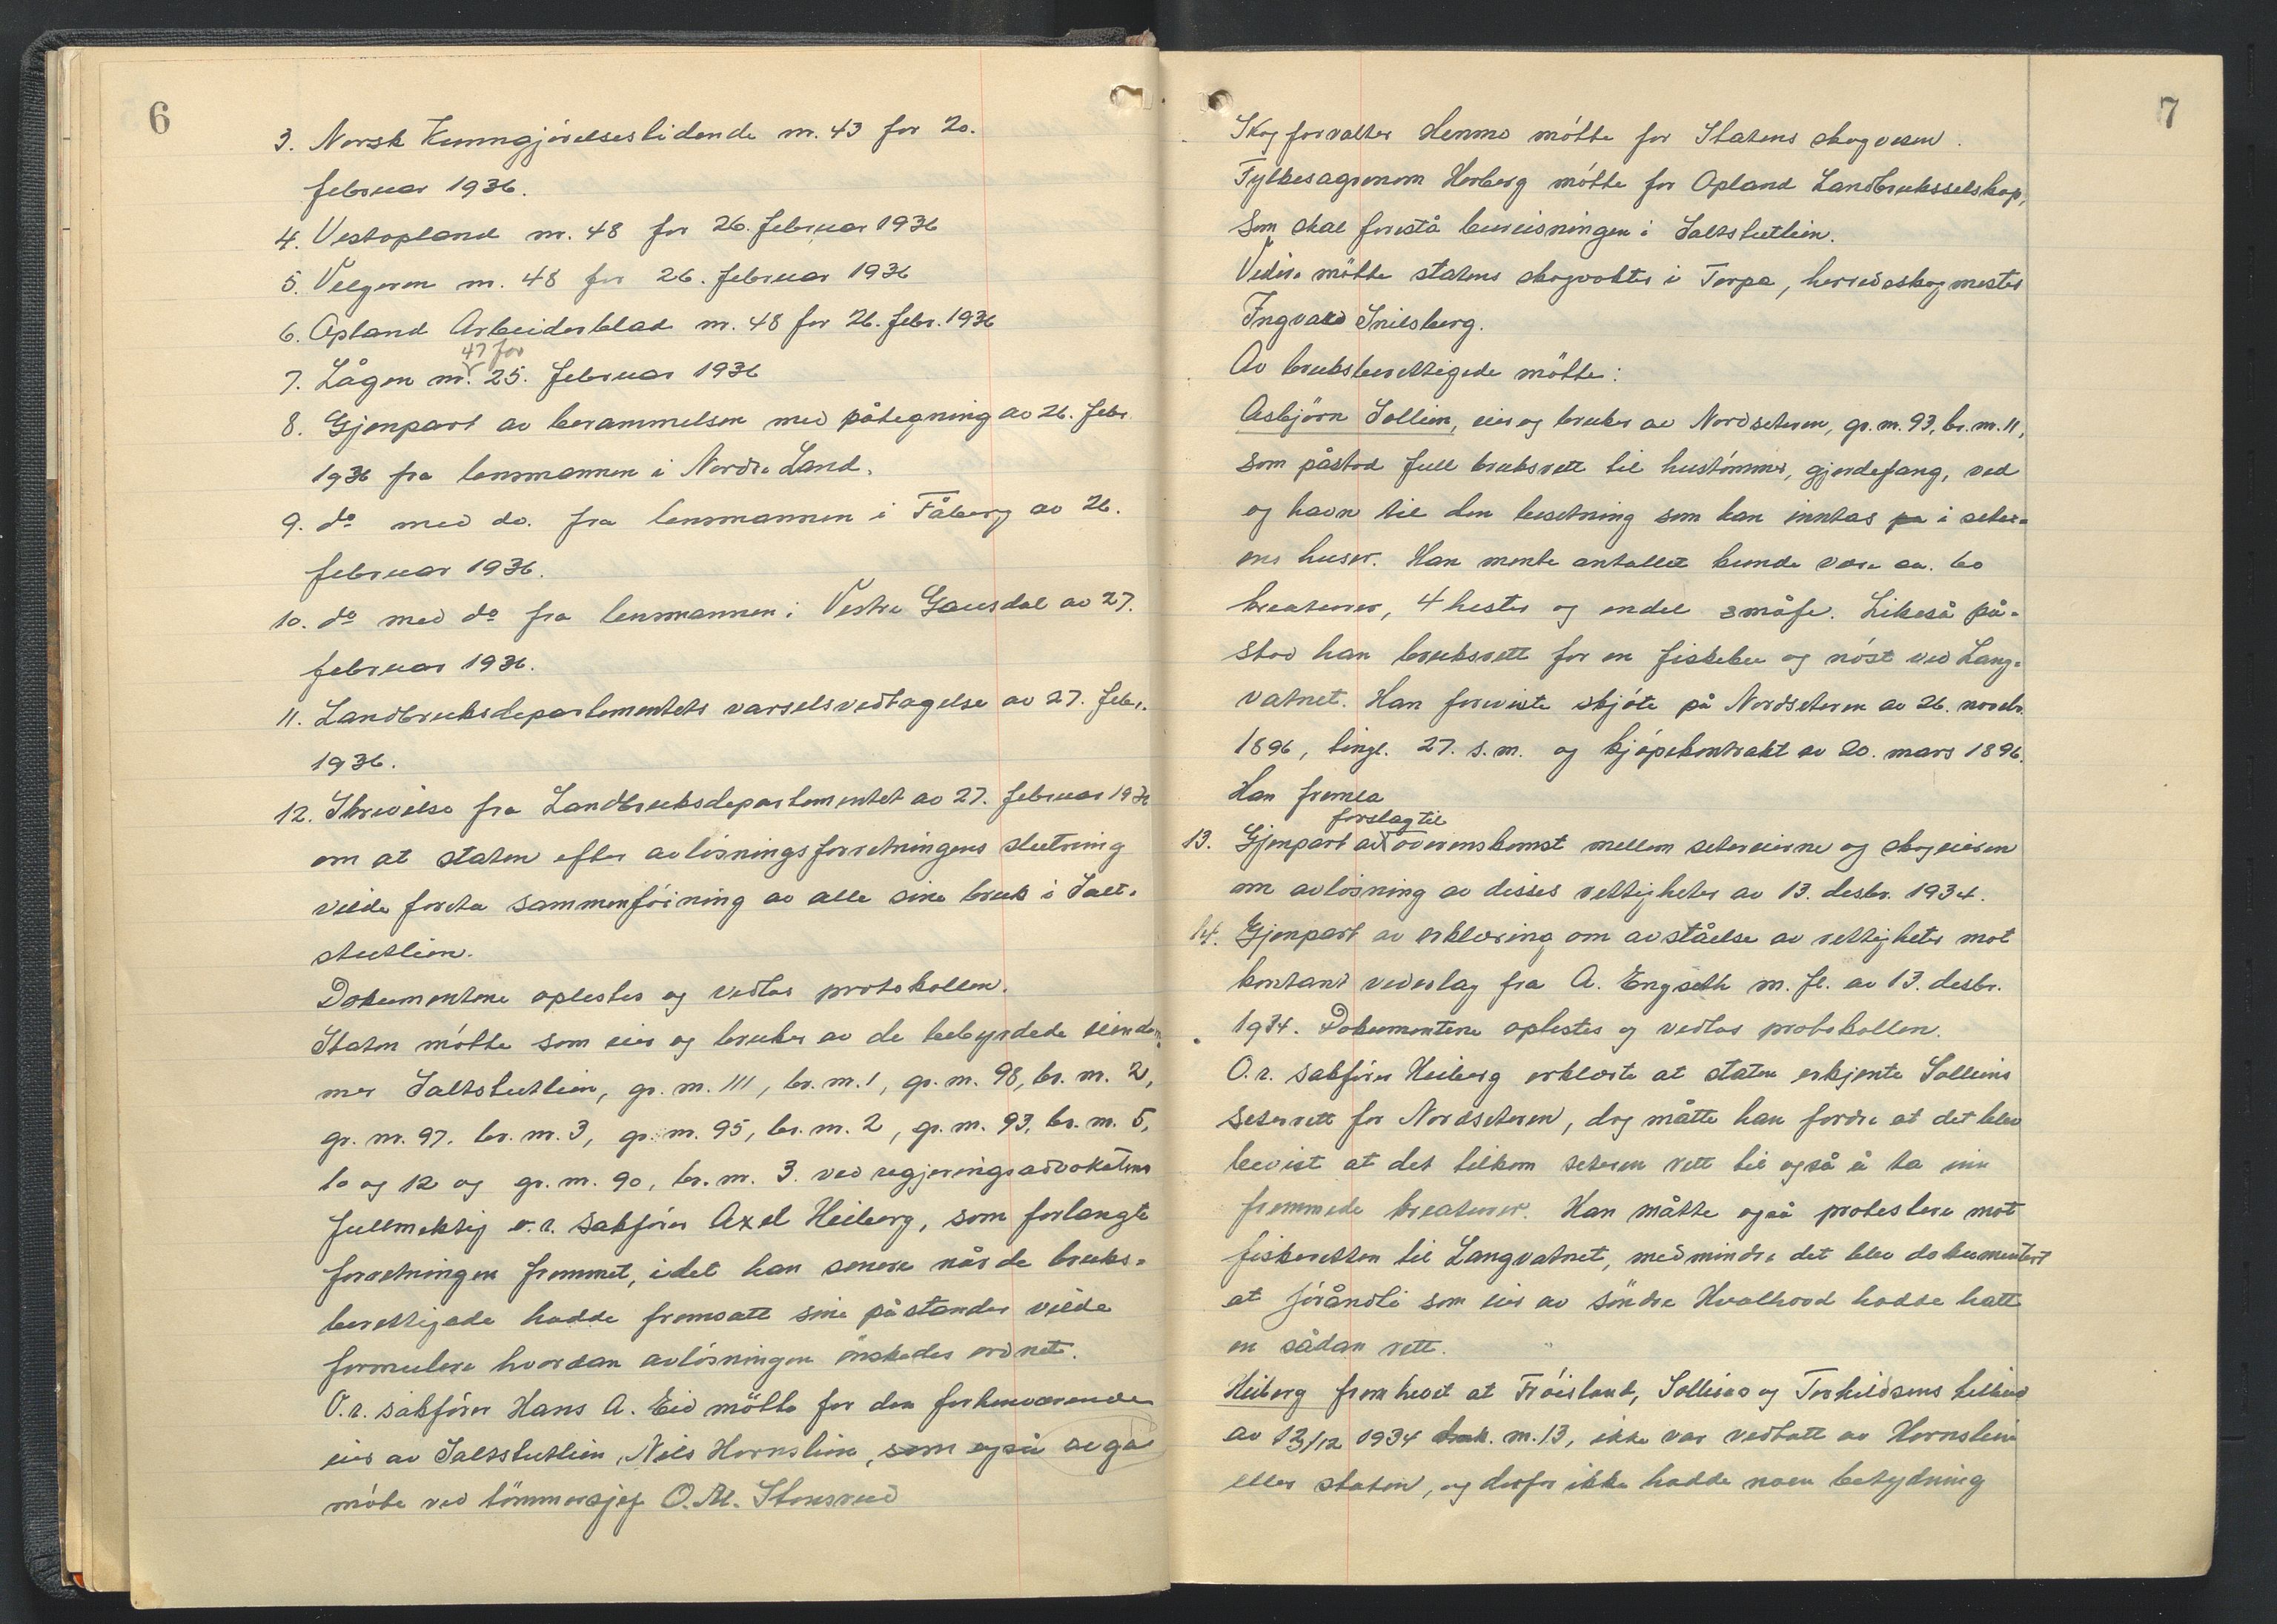 6
3. Norsk Kunngjørelsestidende nr. 43 for 20.
februar 1936.
4. Vestopland nr. 48 for 26. februar 1936
5. Velgeren nr. 48 for 26. februar 1936
6. Opland Arbeiderblad nr. 48 for 26. febr. 1936
47 for
7. Lågen nr. 25. februar 1936
8. Gjenpart av berammelsen med påtegning av 26. febr.
1936 fra lensmannen i Nordre Land.
9. do med do. fra lensmannen i Fåberg av 26.
februar 1936.
10. do med do fra lensmannen i Vestre Gausdal av 27.
februar 1936.
11. Landbruksdepartementets varselsvedtagelse av 27. febr.
1936.
12. Skrivelse fra Landbruksdepartementet av 27. februar 1936
om at staten efter avløsningsforretningens slutning
vilde foreta sammenføining av alle sine bruk i Salt-
stutlien.
Dokumentene oplestes og vedlas protokollen.
Staten møtte som eier og bruker av de bebyrdede eiendom-
mer Saltstutlien, gr. nr. 111, br. nr. 1, gr. nr. 98, br. nr. 2,
gr. nr. 97. br. nr. 3, gr. nr. 95, br. nr. 2, gr. nr. 93, br. nr. 5,
10 og 12 og gr. nr. 90, br. nr. 3. ved regjeringsadvokatens
fullmektig o.r. sakfører Axel Heiberg, som forlangte
forretningen fremmet, idet han senere når de bruks-
berettigede hadde fremsatt sine påstander vilde
formulere hvordan avløsningen ønskedes ordnet.
O.r. sakfører Hans A. Eid møtte for den forhenværende
eier av Saltstutlien, Nils Hornslien, som også avga
møte ved tømmersjef O. M. Stensrud
7
Skogforvalter Hemmo møtte for Statens skogvesen.
Fylkesagronom Herberg møtte for Opland Landbruksselskap,
som skal forestå bureisningen i Saltstutlien.
Videre møtte statens skogvokter i Torpa, herredsskogmester
Ingvald Snilsberg.
Av bruksberettigede møtte:
Asbjørn Sollien, eier og bruker av Nordseteren, gr. nr. 93, br. nr. 11,
som påstod full bruksrett til hustømmer, gjerdefang, ved
og havn til den besetning som kan inntas pa i seter-
ens huser. Han mente antallet kunde være ca. 60
kreaturer, 4 hester og endel småfe. Likeså på-
stod han bruksrett for en fiskebu og nøst ved Lang-
vatnet. Han foreviste skjøte på Nordseteren av 26. novbr.
1896, tingl. 27. s.m. og kjøpekontrakt av 20. mars 1896.
Han fremla
forslag til
13. Gjenpart av overenskomst mellem setereierne og skogeieren
om avløsning av disses rettigheter av 13. desbr. 1934.
14. Gjenpart av erklæring om avståelse av rettigheter mot
kontant vederlag fra A. Engseth m. fl. av 13. desbr.
1934. Dokumentene oplestes og vedlas protokollen.
O.r. sakfører Heiberg erklærte at staten erkjente Solliens
seterrett for Nordseteren, dog måtte han fordre at det blev
bevist at det tilkom seteren rett til også å ta inn
fremmede kreaturer. Han måtte også protestere mot
fiskeretten til Langvatnet, medmindre det blev dokumentert
at som eier av søndre hadde hatt
en sådan rett.
Heiberg fremhevet at Frøisland, Solliens og Torkildsens tilbud
av 13/12 1934 dok. nr. 13, ikke var vedtatt av Hornslien
eller staten, og derfor ikke hadde noen betydning